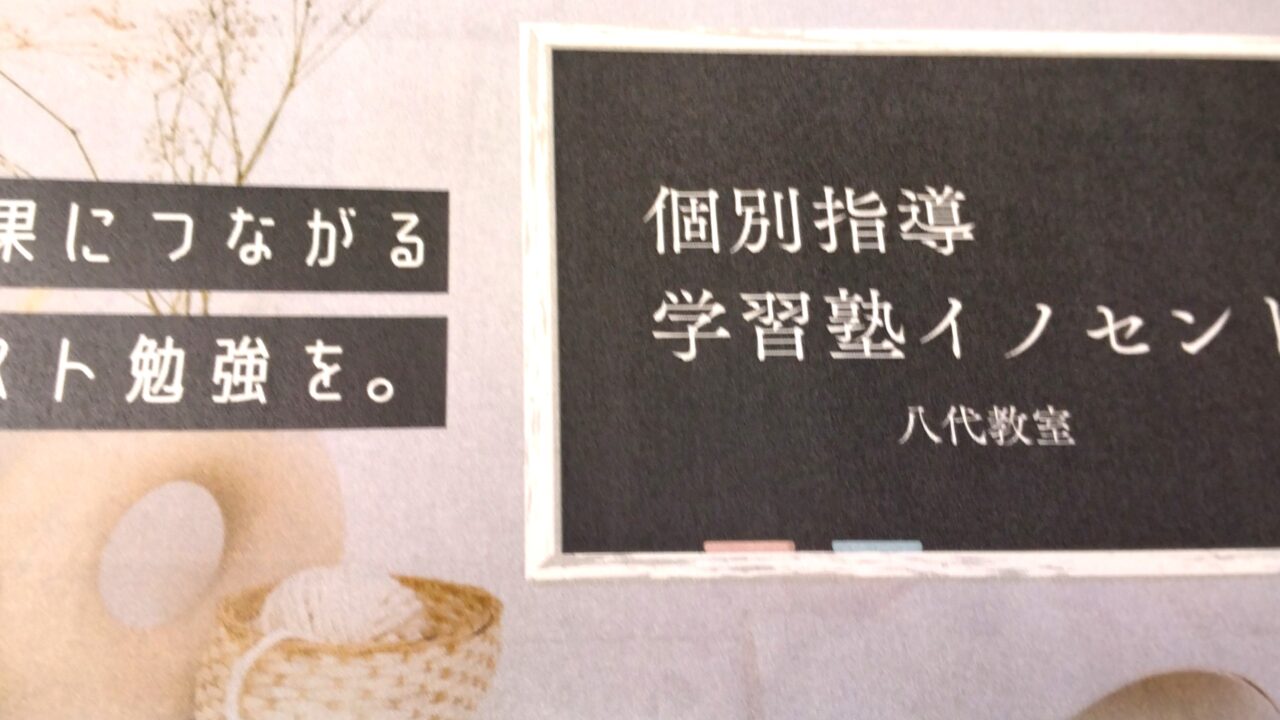 果につながる
スト勉強を。
個別指導
学習塾イノセント
八代教室